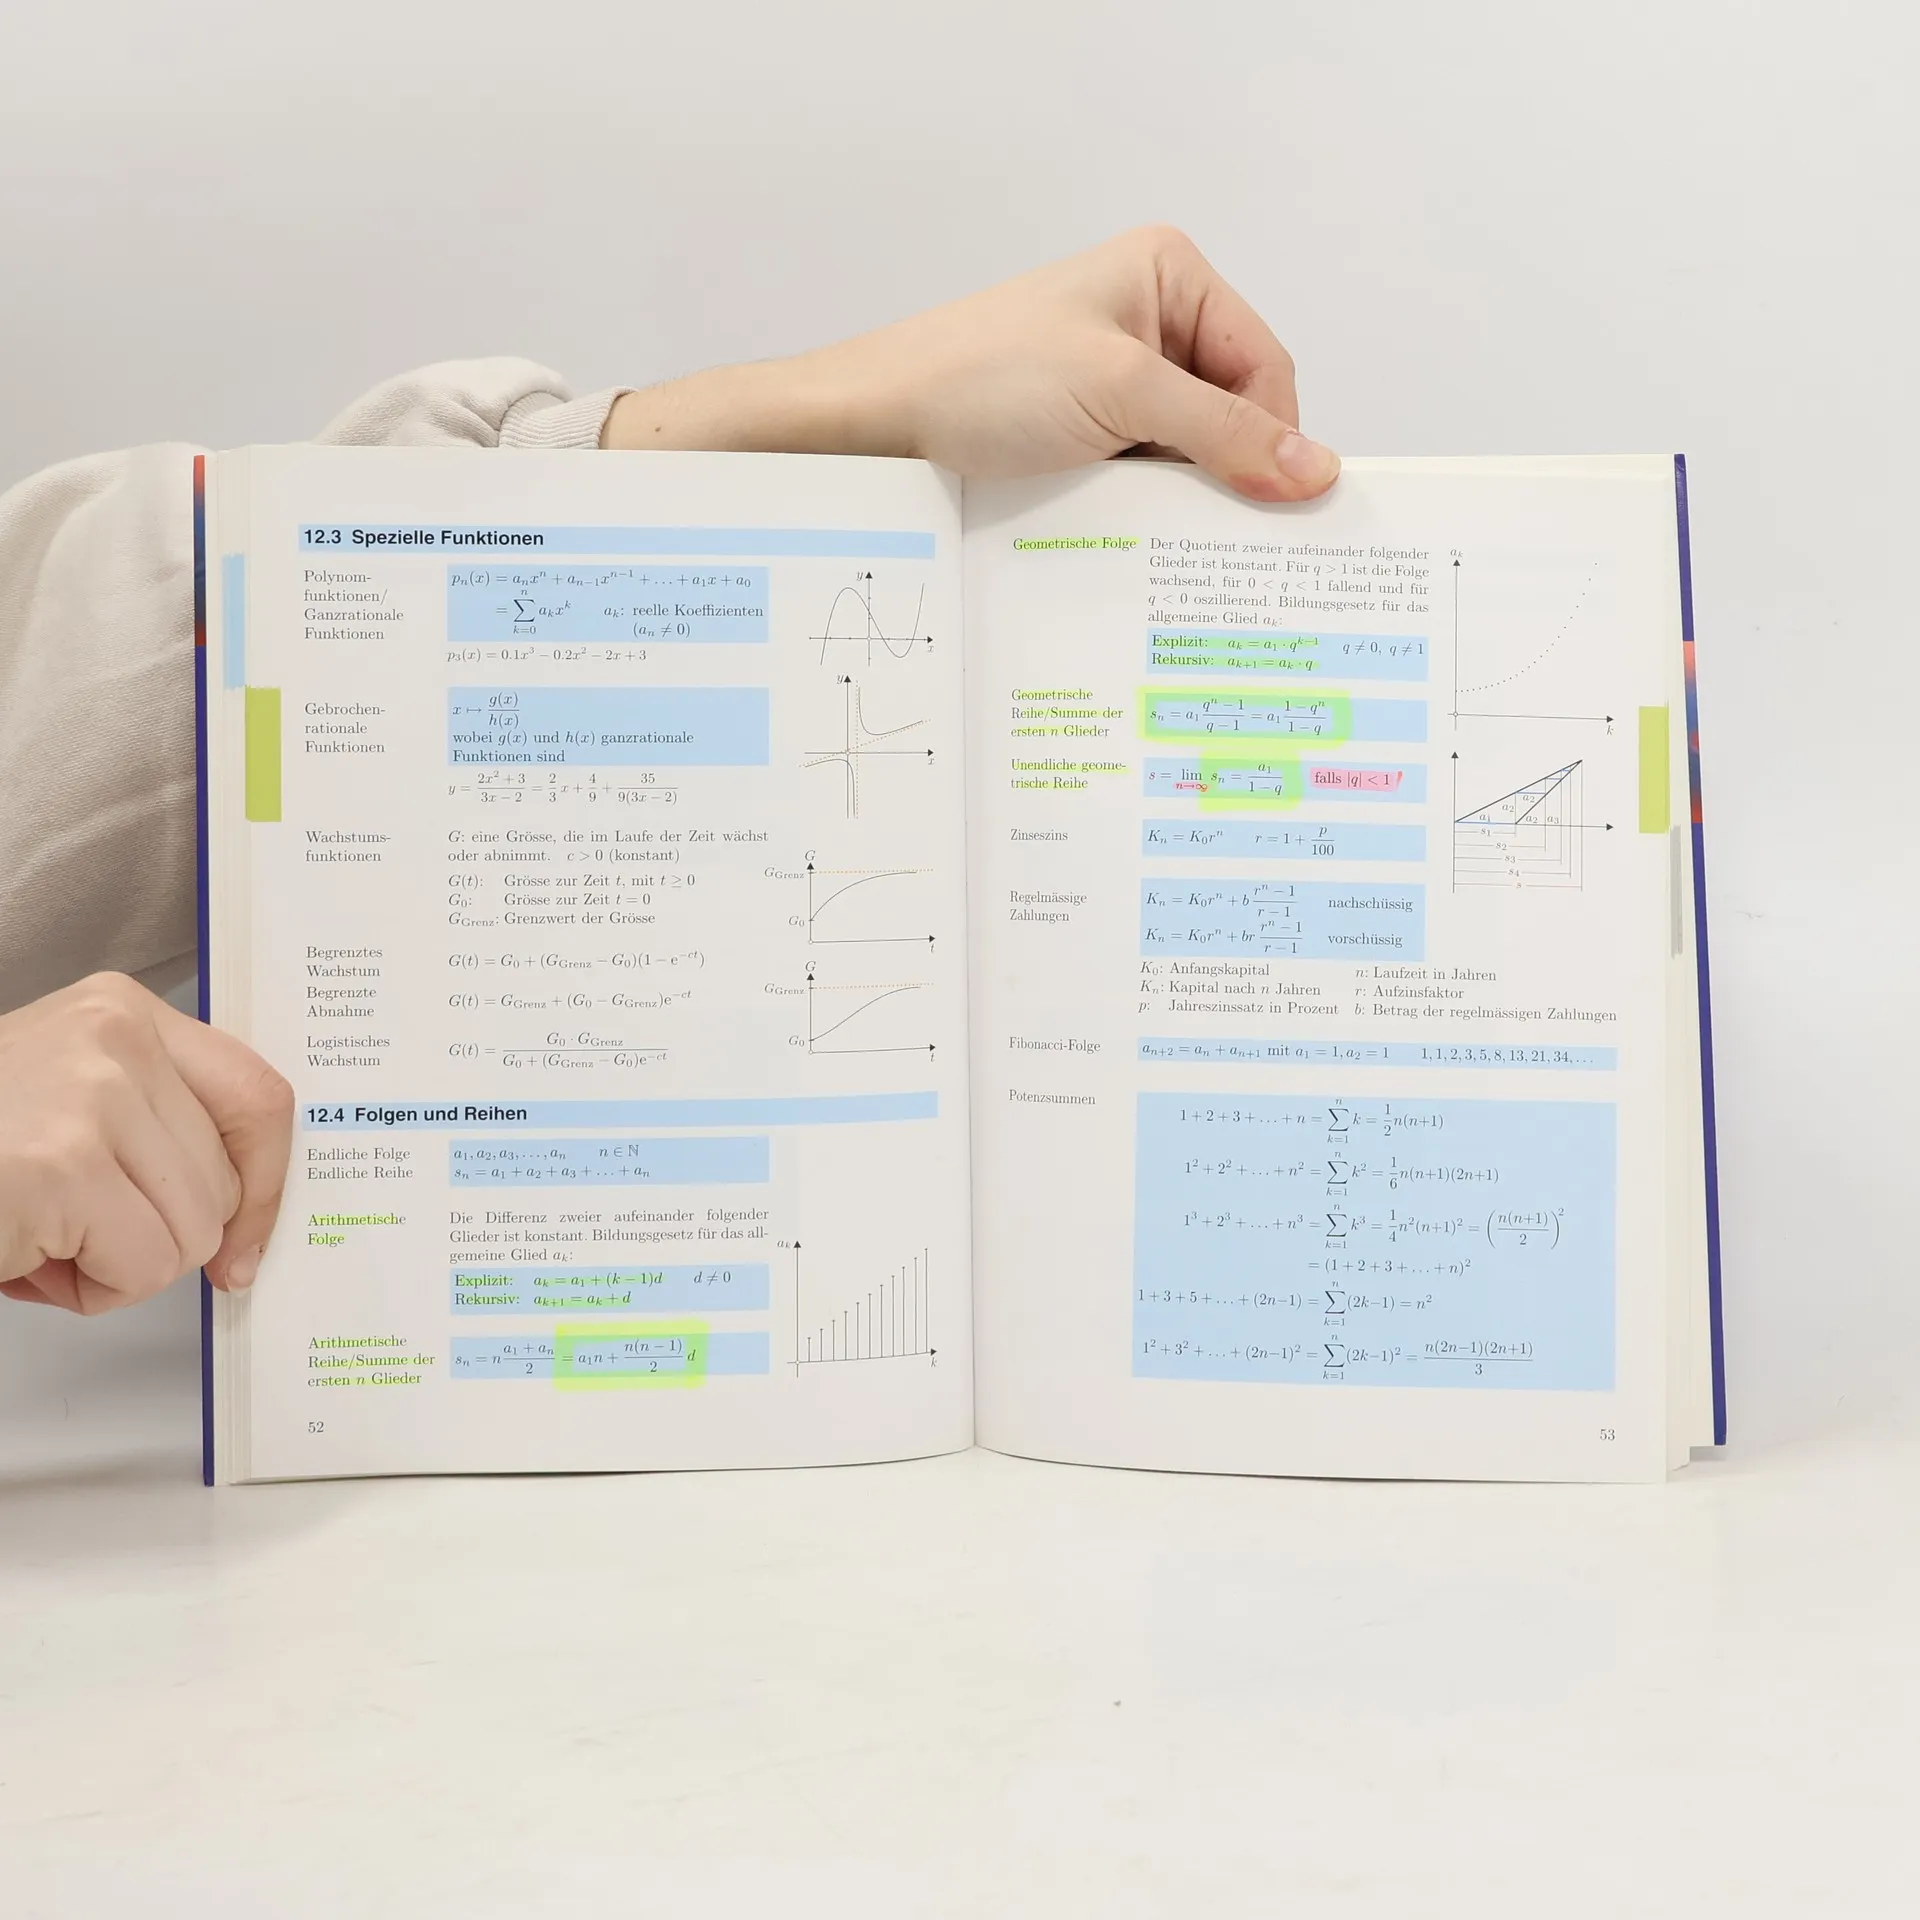 12.3 Spezielle Funktionen
Polynom-
funktionen/
Ganzrationale
Funktionen
pₙ(x) = aₙxⁿ + aₙ₋₁xⁿ⁻¹ + … + a₁x + a₀
= ∑ₖ₌₀ⁿ aₖxᵏ aₖ: reelle Koeffizienten
(aₙ ≠ 0)
p₃(x) = 0.1x³ − 0.2x² − 2x + 3
y
x
Gebrochen-
rationale
Funktionen
x ↦ g(x)/h(x)
wobei g(x) und h(x) ganzrationale
Funktionen sind
y = (2x² + 3)/(3x − 2) = 2/3 x + 4/9 + 35/(9(3x − 2))
y
x
Wachstums-
funktionen
G: eine Grösse, die im Laufe der Zeit wächst
oder abnimmt. c > 0 (konstant)
G(t): Grösse zur Zeit t, mit t ≥ 0
G₀: Grösse zur Zeit t = 0
G_Grenz: Grenzwert der Grösse
G
G_Grenz
G₀
t
Begrenztes
Wachstum
G(t) = G₀ + (G_Grenz − G₀)(1 − e⁻ᶜᵗ)
Begrenzte
Abnahme
G(t) = G_Grenz + (G₀ − G_Grenz)e⁻ᶜᵗ
Logistisches
Wachstum
G(t) = (G₀ · G_Grenz)/(G₀ + (G_Grenz − G₀)e⁻ᶜᵗ)
G
G_Grenz
G₀
t
12.4 Folgen und Reihen
Endliche Folge a₁, a₂, a₃, …, aₙ n ∈ ℕ
Endliche Reihe sₙ = a₁ + a₂ + a₃ + … + aₙ
Arithmetische
Folge
Die Differenz zweier aufeinander folgender
Glieder ist konstant. Bildungsgesetz für das all-
gemeine Glied aₖ:
Explizit: aₖ = a₁ + (k − 1)d d ≠ 0
Rekursiv: aₖ₊₁ = aₖ + d
Arithmetische
Reihe/Summe der
ersten n Glieder
sₙ = n (a₁ + aₙ)/2 = a₁n + n(n − 1)/2 d
aₖ
k
52
Geometrische Folge
Der Quotient zweier aufeinander folgender
Glieder ist konstant. Für q > 1 ist die Folge
wachsend, für 0 < q < 1 fallend und für
q < 0 oszillierend. Bildungsgesetz für das
allgemeine Glied aₖ:
Explizit: aₖ = a₁ · qᵏ⁻¹ q ≠ 0, q ≠ 1
Rekursiv: aₖ₊₁ = aₖ · q
aₖ
k
Geometrische
Reihe/Summe der
ersten n Glieder
sₙ = a₁ (qⁿ − 1)/(q − 1) = a₁ (1 − qⁿ)/(1 − q)
Unendliche geome-
trische Reihe
s = lim n→∞ sₙ = a₁/(1 − q) falls |q| < 1 !
a₂ a₂
a₁ a₂ a₃
s₁
s₂
s₃
s₄
s
Zinseszins
Kₙ = K₀rⁿ r = 1 + p/100
Regelmässige
Zahlungen
Kₙ = K₀rⁿ + b (rⁿ − 1)/(r − 1) nachschüssig
Kₙ = K₀rⁿ + br (rⁿ − 1)/(r − 1) vorschüssig
K₀: Anfangskapital n: Laufzeit in Jahren
Kₙ: Kapital nach n Jahren r: Aufzinsfaktor
p: Jahreszinssatz in Prozent b: Betrag der regelmässigen Zahlungen
Fibonacci-Folge
aₙ₊₂ = aₙ + aₙ₊₁ mit a₁ = 1, a₂ = 1 1, 1, 2, 3, 5, 8, 13, 21, 34, …
Potenzsummen
1 + 2 + 3 + … + n = ∑ₖ₌₁ⁿ k = 1/2 n(n+1)
1² + 2² + … + n² = ∑ₖ₌₁ⁿ k² = 1/6 n(n+1)(2n+1)
1³ + 2³ + … + n³ = ∑ₖ₌₁ⁿ k³ = 1/4 n²(n+1)² = (n(n+1)/2)²
= (1 + 2 + 3 + … + n)²
1 + 3 + 5 + … + (2n−1) = ∑ₖ₌₁ⁿ (2k−1) = n²
1² + 3² + … + (2n−1)² = ∑ₖ₌₁ⁿ (2k−1)² = n(2n−1)(2n+1)/3
53